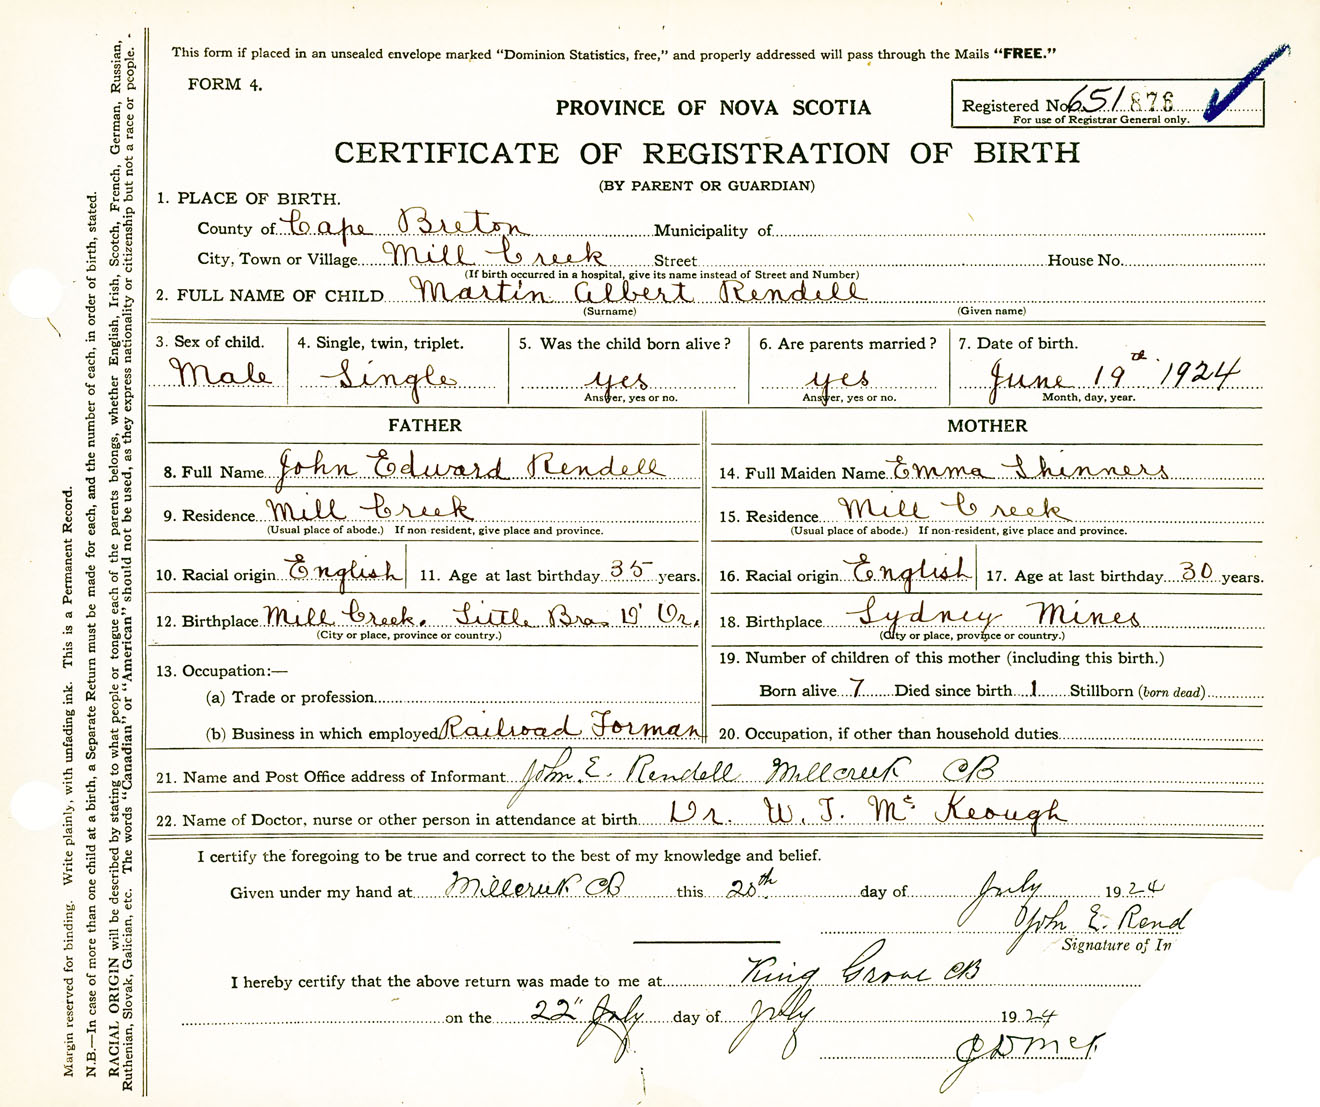 This form if placed in an unsealed envelope marked “Dominion Statistics, free,” and properly addressed will pass through the Mails “FREE.”
FORM 4.
Registered No. 651 876
For use of Registrar General only.
PROVINCE OF NOVA SCOTIA
CERTIFICATE OF REGISTRATION OF BIRTH
(BY PARENT OR GUARDIAN)
1. PLACE OF BIRTH.
County of Cape Breton Municipality of
City, Town or Village Mill Creek Street House No.
(If birth occurred in a hospital, give its name instead of Street and Number)
2. FULL NAME OF CHILD Martin Albert Rendell
(Surname) (Given name)
3. Sex of child. 4. Single, twin, triplet. 5. Was the child born alive? 6. Are parents married? 7. Date of birth.
Male Single yes yes June 19th 1924
Answer, yes or no. Answer, yes or no. Month, day, year.
FATHER MOTHER
8. Full Name John Edward Rendell 14. Full Maiden Name Emma Shinners
9. Residence Mill Creek 15. Residence Mill Creek
(Usual place of abode.) If non-resident, give place and province. (Usual place of abode.) If non-resident, give place and province.
10. Racial origin English 11. Age at last birthday 35 years. 16. Racial origin English 17. Age at last birthday 30 years.
12. Birthplace Mill Creek. Little Bras D' Or. 18. Birthplace Sydney Mines
(City or place, province or country.) (City or place, province or country.)
13. Occupation:— 19. Number of children of this mother (including this birth.)
(a) Trade or profession Born alive 7 Died since birth 1 Stillborn (born dead)
(b) Business in which employed Railroad Forman 20. Occupation, if other than household duties
21. Name and Post Office address of Informant John. E. Rendell Millcreek CB
22. Name of Doctor, nurse or other person in attendance at birth Dr. W. J. Mc Keough
I certify the foregoing to be true and correct to the best of my knowledge and belief.
Given under my hand at Millcreek CB this 20th day of July 1924
John E. Rend
Signature of In
I hereby certify that the above return was made to me at King Grove CB
on the 22" July day of July 1924
Margin reserved for binding. Write plainly, with unfading ink. This is a Permanent Record.
N.B.—In case of more than one child at a birth, a Separate Return must be made for each, and the number of each, in order of birth, stated.
RACIAL ORIGIN will be described by stating to what people or tongue each of the parents belongs, whether English, Irish, Scotch, French, German, Russian,
Ruthenian, Slovak, Galician, etc. The words “Canadian” or “American” should not be used, as they express nationality or citizenship but not a race or people.